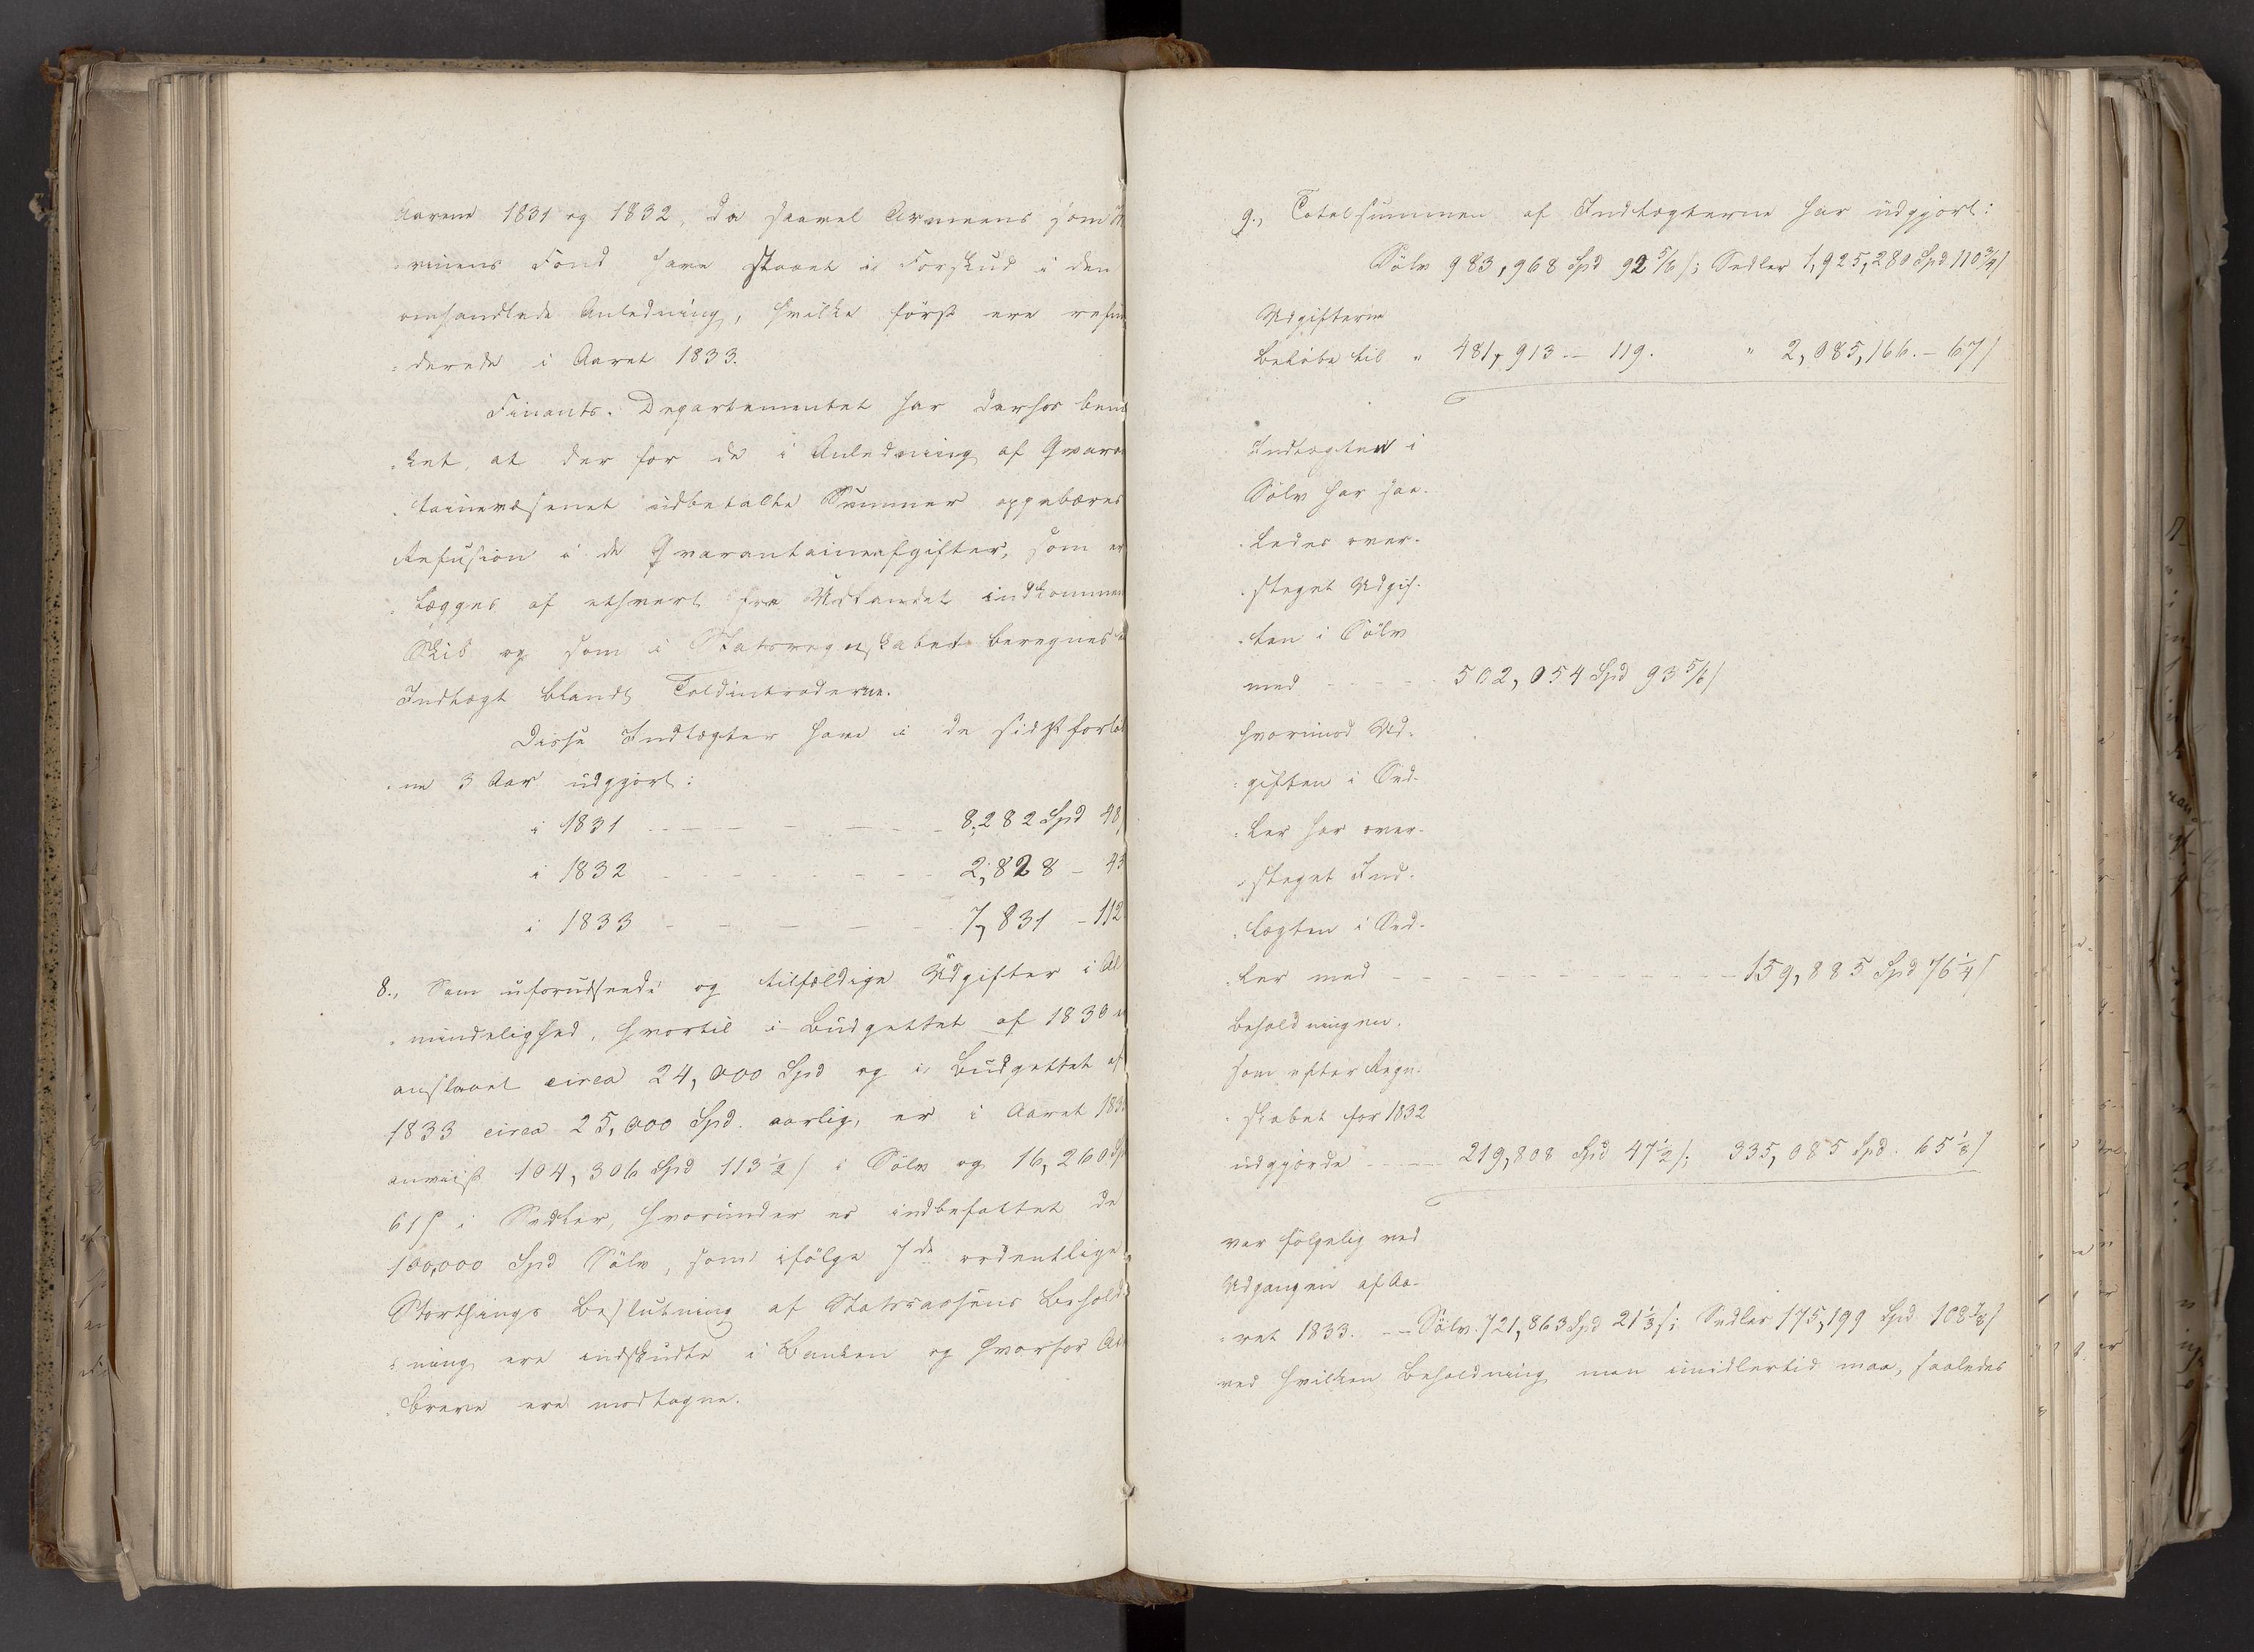 Aarene 1831 og 1832, da saavel Armeens som Ma
rinens Fond have staaet i Forskud i den
omhandlede Anledning, hvilke först ere refun
=derede i Aaret 1833.
Finants-Departementet har derhos bemær
ket, at der for de i Anledning af Qvaran
tainevæsenet udbetalte Summer oppebæres
Refusion i de Qvarantaineafgifter, som er
lægges af ethvert fra Udlandet indkommen
Skib og som i Statsregnskabet beregnes til
Indtægt blandt Toldintraderne.
Disse Indtægter have i de sidst forløb
ne 3 Aar udgjort:
i 1831 - - - - - - 8,282 Spd 48
i 1832 - - - - - - 2,828 - 43
i 1833 - - - - - - 7,831 - 112
8., Som uforudseede og tilfældige Udgifter i Al
mindelighed, hvortil i Budgettet af 1830 er
anslaaet circa 24,000 Spd og i Budgettet af
1833 circa 25,000 Spd. aarlig, er i Aaret 1833
anviist 104,306 Spd 113½ s i Sölv og 16,260 Sp
61 s i Sedler, hvorunder er indbefattet de
100,000 Spd Sölv, som ifölge 7de ordentlige
Storthings Beslutning af Statscassens Behold
=ning ere indskudte i Banken og hvorfor Act
breve ere modtagne.
9., Totalsummen af Indtægterne har udgjort:
Sölv 983,968 Spd 92 5/6 s; Sedler 1,925,280 Spd 110¾ s
Udgifterne
belöbe til " 481,913 -- 119. " 2,085,166. - 67 s
Indtægten i
Sölv har saa-
ledes over-
steget Udgif-
ten i Sölv
med - - - - 502,054 Spd 93 5/6 s
hvorimod Ud-
=giften i Sed-
=ler har over-
steget Ind-
tægten i Sed-
ler med - - - - - - - - - - 159,885 Spd 76¼ s
Beholdningen,
som efter Regn-
skabet for 1832
udgjorde - - - 219,808 Spd 47½ s; 335,085 Spd. 65⅛ s
var fölgelig ved
Udgangen af Aa-
=ret 1833. -- Sölv 721,863 Spd 21⅓ s; Sedler 175,199 Spd 108⅞ s
ved hvilken Beholdning man imidlertid maa, saaledes